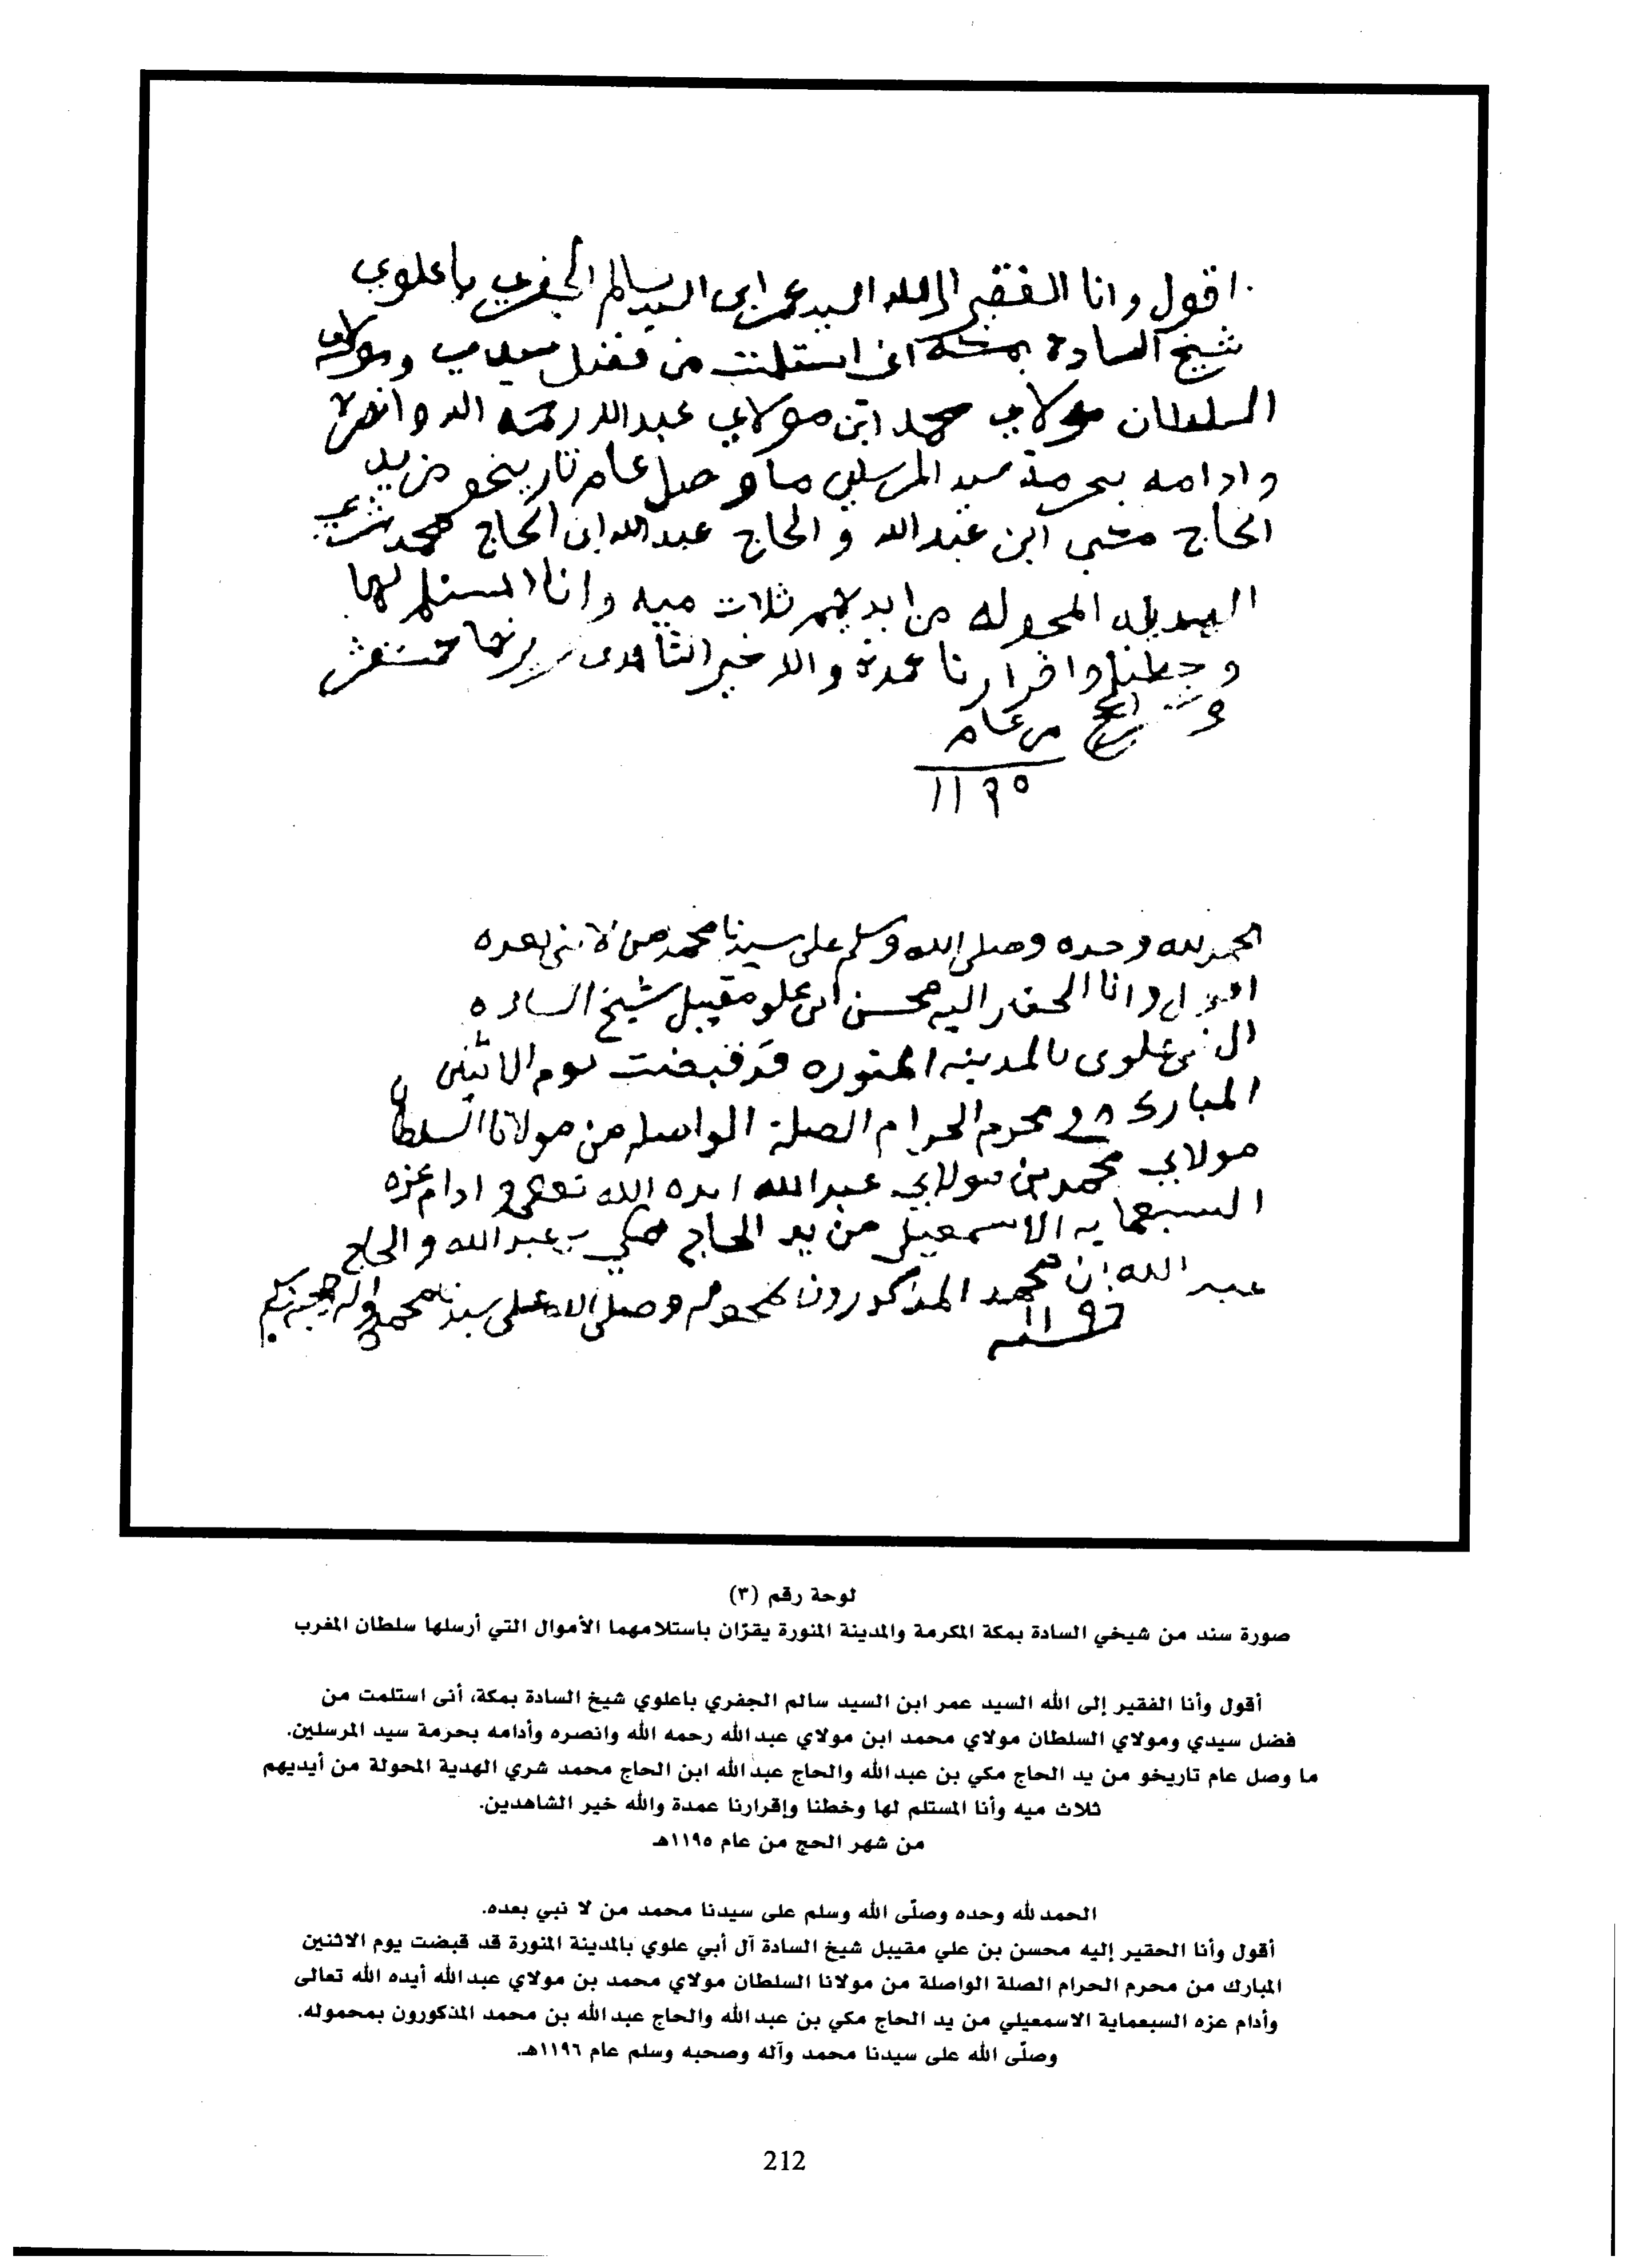 اقول وانا الفقير الى الله السيد عمر ابن السيد سالم الجفري باعلوي
شيخ السادة بمكة انى استلمت من فضل سيدي ومولاي
السلطان مولاي محمد ابن مولاي عبدالله رحمه الله وانصره
وادامه بحرمة سيد المرسلين ما وصل عام تاريخو من يد
الحاج مكي ابن عبدالله والحاج عبدالله ابن الحاج محمد شري
الهديه المحوله من ايديهم ثلاث ميه وانا المستلم لها
وخطنا واقرارنا عمدة والله خير الشاهدين
الحج من عام
١١٩٥
الحمد لله وحده وصلى الله وسلم على سيدنا محمد من لا نبي بعده
اقول وانا الحقير اليه محسن ابن علو مقيبل شيخ الساده
ال ابي علوى بالمدينه المنوره قد قبضت يوم الاثنين
المبارك في محرم الحرام الصلة الواصله من مولانا السلطان
مولاي محمد بن مولاي عبدالله ايده الله تعالى وادام عزه
السبعمايه الاسمعيلي من يد الحاج مكي بن عبدالله والحاج
عبدالله ابن محمد المذكورون بمحموله وصلى الله على سيدنا محمد واله وصحبه وسلم
١١٩٦
سنه
لوحة رقم (٣)
صورة سند من شيخي السادة بمكة المكرمة والمدينة المنورة يقرّان باستلامهما الأموال التي أرسلها سلطان المغرب
أقول وأنا الفقير إلى الله السيد عمر ابن السيد سالم الجفري باعلوي شيخ السادة بمكة، أنى استلمت من
فضل سيدي ومولاي السلطان مولاي محمد ابن مولاي عبدالله رحمه الله وانصره وأدامه بحرمة سيد المرسلين.
ما وصل عام تاريخو من يد الحاج مكي بن عبدالله والحاج عبدالله ابن الحاج محمد شري الهدية المحولة من أيديهم
ثلاث ميه وأنا المستلم لها وخطنا وإقرارنا عمدة والله خير الشاهدين.
من شهر الحج من عام ١١٩٥هـ
الحمد لله وحده وصلّى الله وسلم على سيدنا محمد من لا نبي بعده.
أقول وأنا الحقير إليه محسن بن علي مقيبل شيخ السادة آل أبي علوي بالمدينة المنورة قد قبضت يوم الاثنين
المبارك من محرم الحرام الصلة الواصلة من مولانا السلطان مولاي محمد بن مولاي عبدالله أيده الله تعالى
وأدام عزه السبعماية الاسمعيلي من يد الحاج مكي بن عبدالله والحاج عبدالله بن محمد المذكورون بمحموله.
وصلّى الله على سيدنا محمد وآله وصحبه وسلم عام ١١٩٦هـ.
212